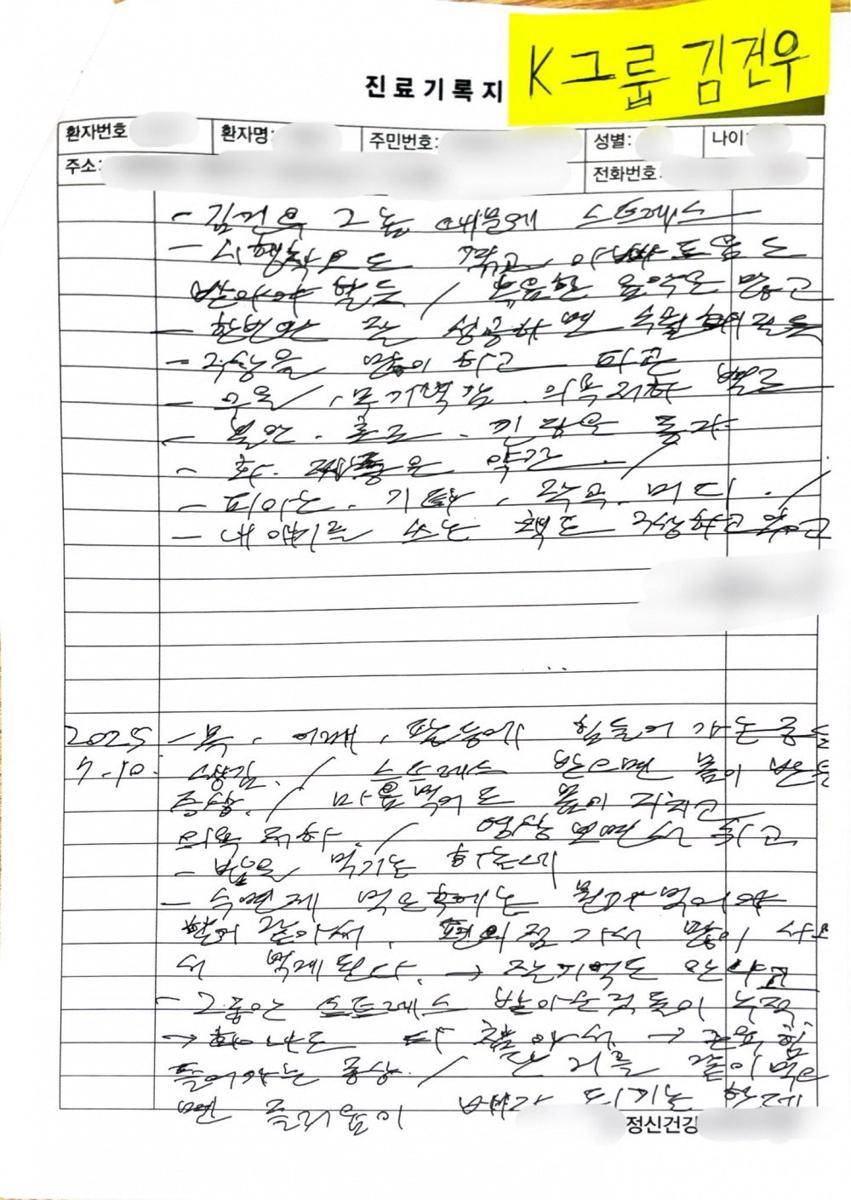 K그룹 김건우
진료기록지
환자번호 환자명: 주민번호: 성별: 나이
주소: 전화번호
- 김건우 그놈 때문에 스트레스
- 시행착오도 겪고 아빠 도움도
받아야 할듯 /
- 한번만 잘 성공하면
- 구상을 많이 하고 파곤
- 우울, 무기력감, 의욕저하 별로
- 불안. 초조. 긴장은
- 화. 은 약간.
- 피아노. 기타. 작곡.
- 내 얘기를 쓰는 책도 구상하고 있고
2025 - 목, 어깨, 팔 등에 힘들어가는
7.10. 생김. / 스트레스 받으면 몸이
증상. / 마음먹어도 몸이 지치고
의욕 저하. / 영상 보면서
- 밥을 먹기는 하는데
- 수면제 먹은후에는 뭔가 먹어야
할거 같아서, 편의점 가서 많이 사
서 먹게된다. →
- 그동안 스트레스 받아온것들이 누적
→ 화나도 다 참아서. → 근육 힘
들어가는 증상. / 같이 먹으
면 졸리움이 되기는 한데
정신건강